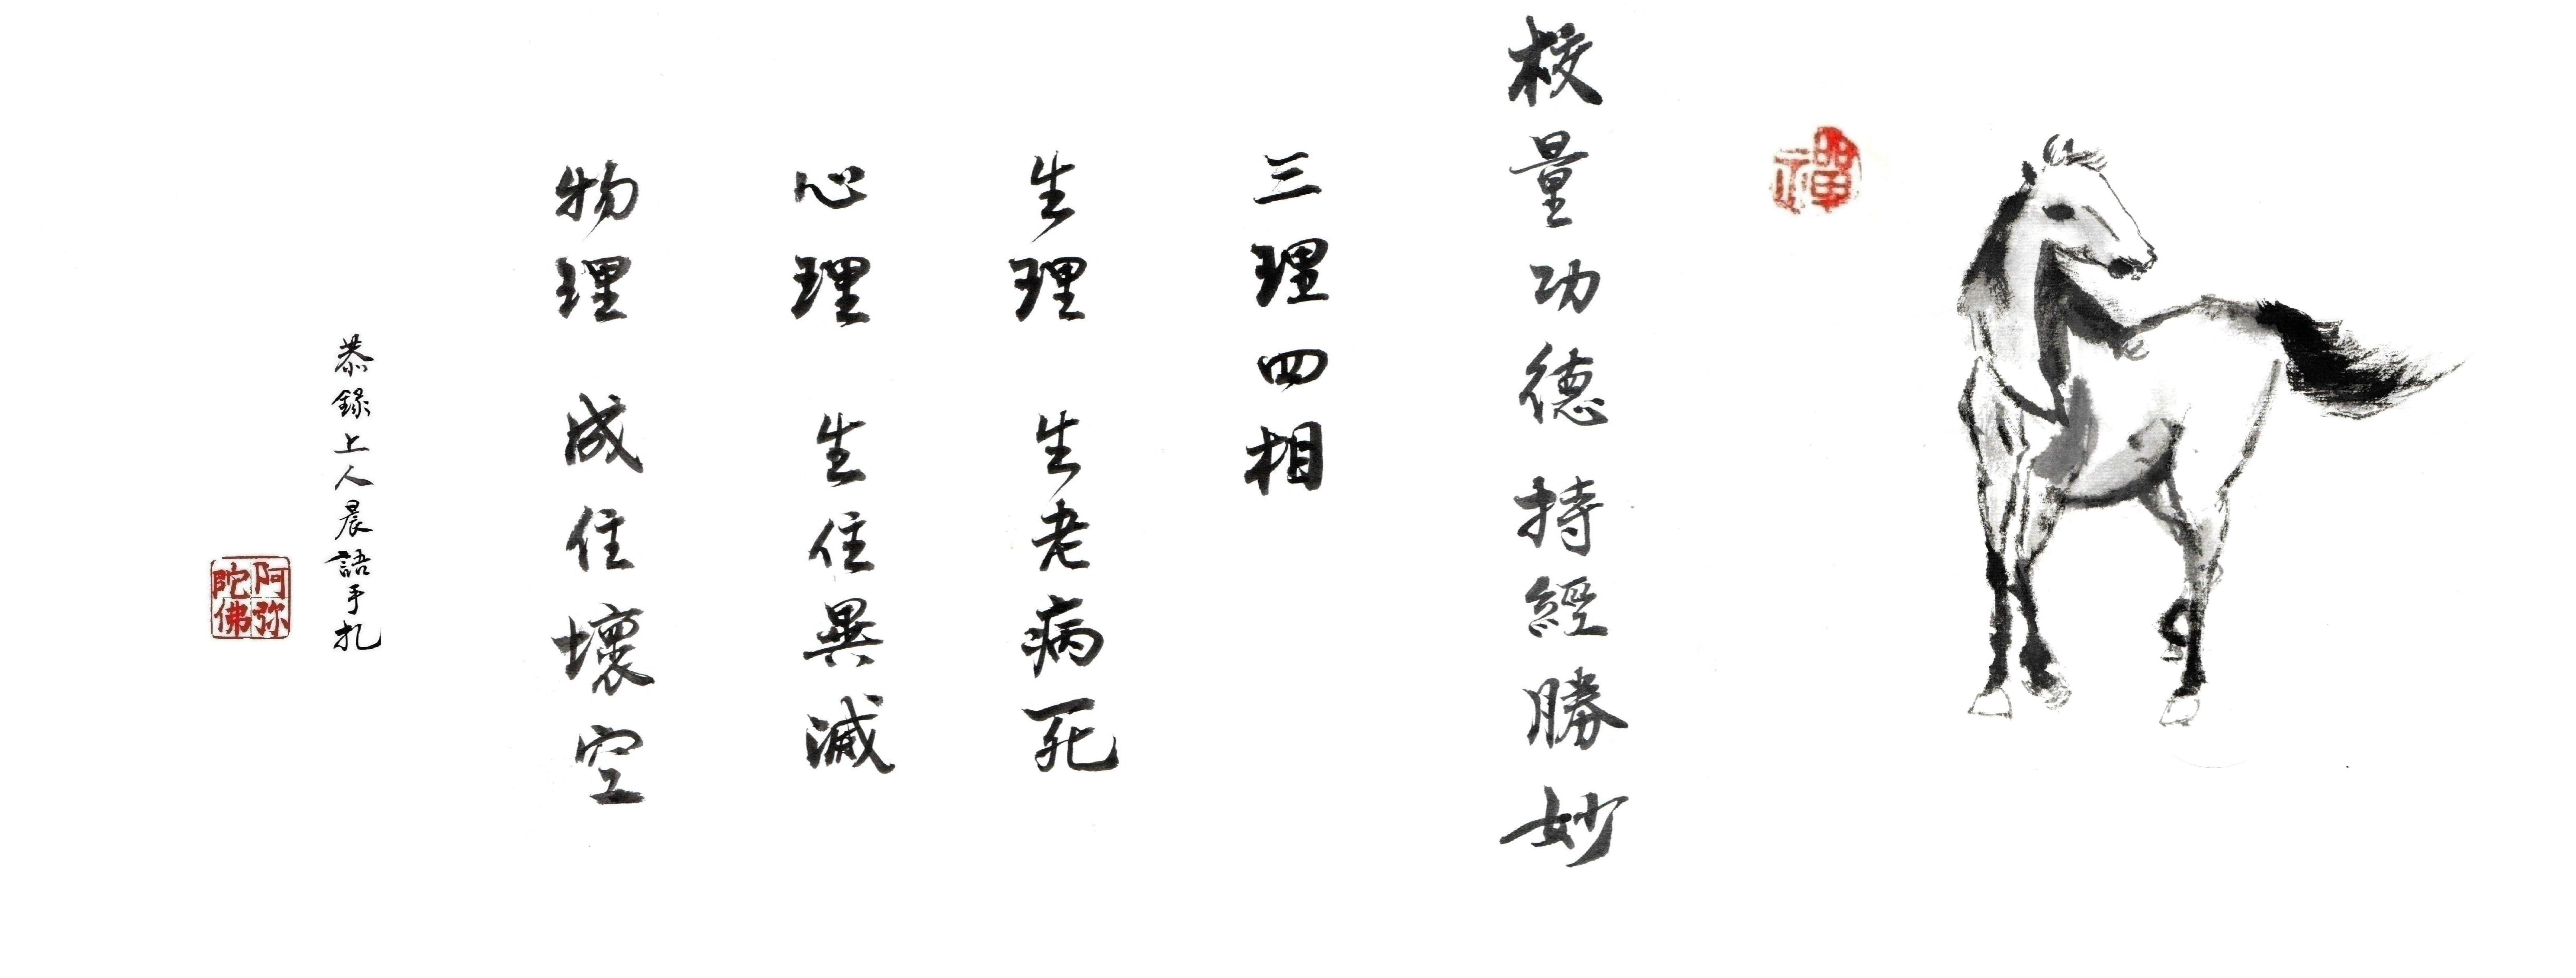 禪
校量功德 持經勝妙
三理四相
生理 生老病死
心理 生住異滅
物理 成住壞空
恭錄上人晨語手札
阿弥陀佛